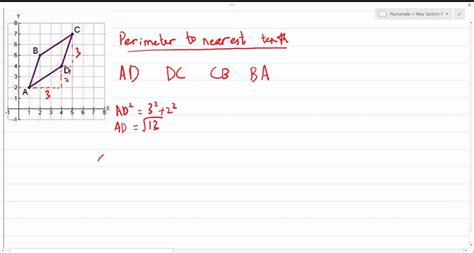 Numerade • New Section 1
Y
8
7
6
5
4
3
2
1
-1
-1
1 2 3 4 5 6 7 8
X
A
B
C
D
3
2
3
Perimeter to nearest tenth
AD DC CB BA
AD² = 3² + 2²
AD = √13